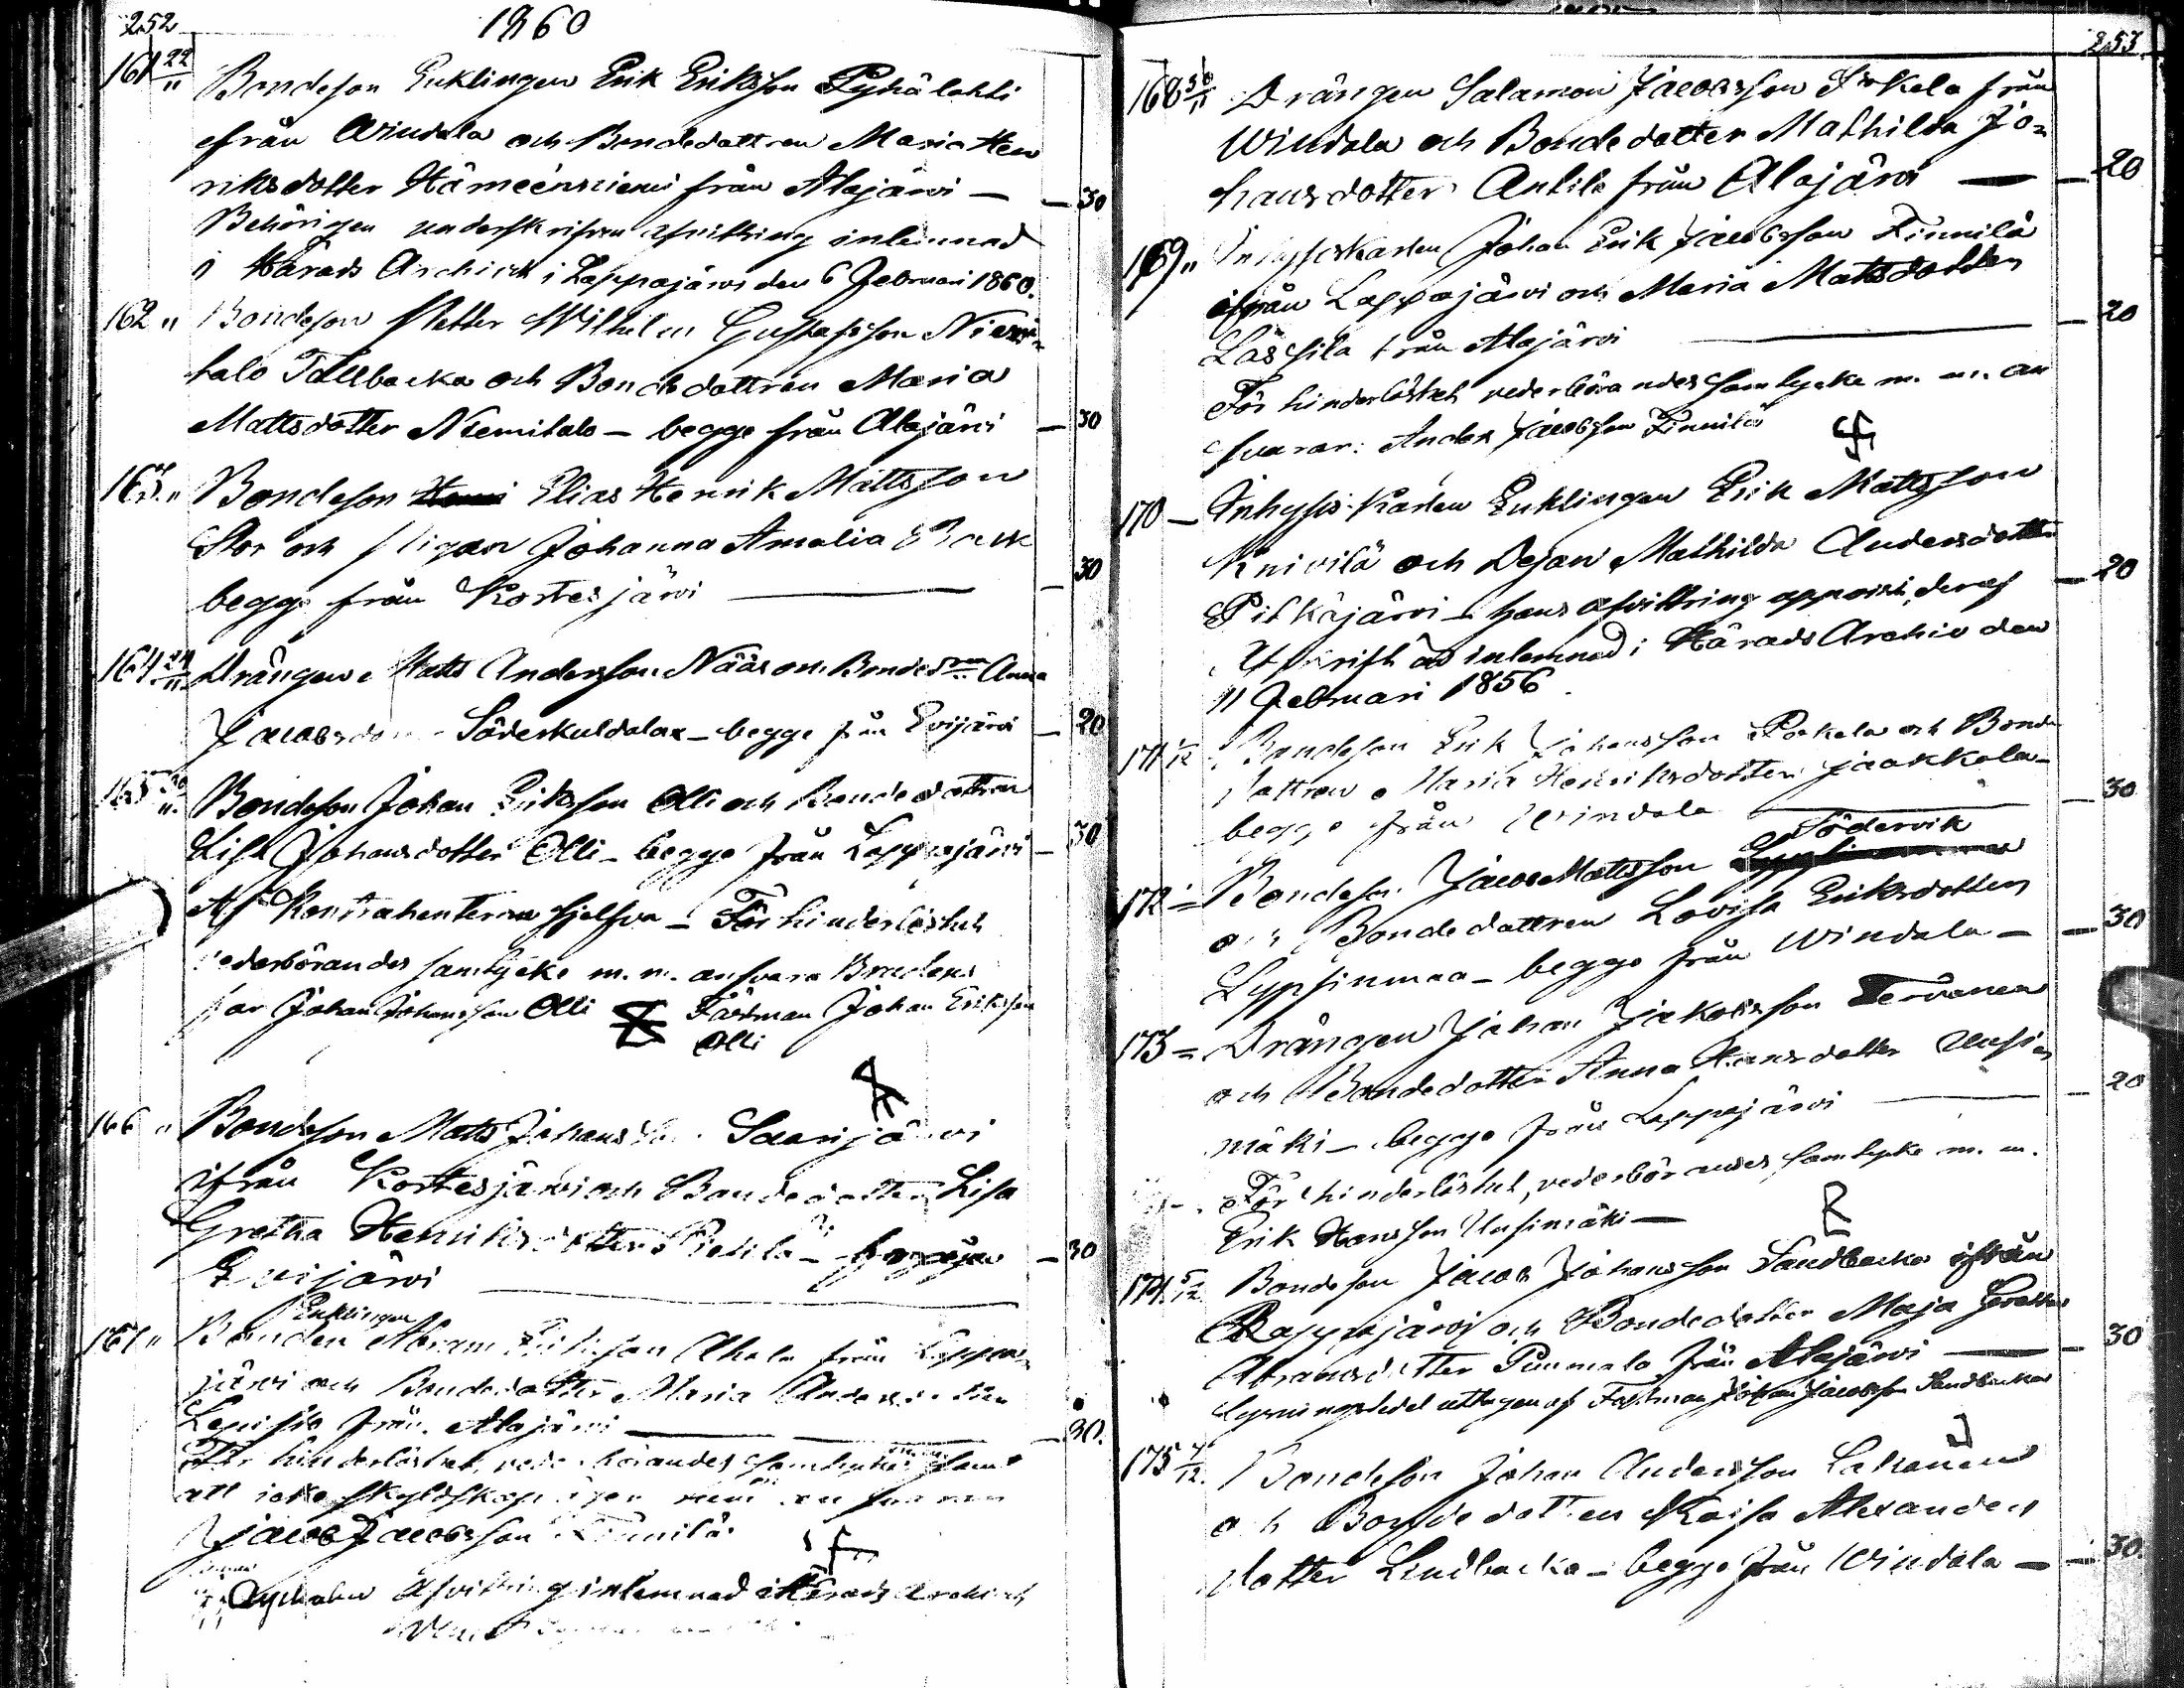 252
1860
161 22/11 Bondeson Enklingen Erik Eriksson Pyhälahti
från Windala och Bondedottren Maria Hen
riksdotter Hämeenniemi från Alajärvi — — 30
Behörigen underskrifven afvittring inlemnad
i Härads Archivet i Lappajärvi den 6 Februari 1860.
162 " Bondeson Petter Wilhelm Gustafsson Niemi-
talo Tallbacka och Bondedottren Maria
Mattsdotter Niemitalo — begge från Alajärvi — 30
163 " Bondeson Elias Henrik Mattsson
Stor och Pigan Johanna Amalia
begge från Kortesjärvi — — 30
164 24/11 Drängen Matts Andersson Nääs och Bonded:ren Anna
Jacobsdotter Söderkuldalax — begge från Evijärvi — 20
165 30/11 Bondeson Johan Eriksson Olli och Bondedottren
Lisa Johansdotter Olli — begge från Lappajärvi — 30
Af Kontrahenterna sjelfva — För hinderlöshet
vederbörandes samtycke m. m. ansvara Brudens
far Johan Johansson Olli Fästman Johan Eriksson
Olli
166 " Bondeson Matts Johansson Saarijärvi
ifrån Kortesjärvi och Bondedotter Lisa
Gretha Henriksdotter Pietilä — från — 30
Evijärvi
Enklingen
167 " Bonden Abram Eriksson Ahola från Lappa-
järvi och Bondedotter Maria Andersdotter
från Alajärvi — — 30.
För hinderlöshet, vederbörandes samtycke samt
att icke skyldskap äger rum ansvarar
Jacob Jacobsson Finnilä
afvittring inlemnad i Härads Archivet
253
168 30/11 Drängen Salamon Jacobsson från
Windala och Bondedotter Mathilda Jo-
hansdotter Antila från Alajärvi — — 20
169 " Inhyseskarlen Johan Erik Jacobsson Finnilä
ifrån Lappajärvi och Maria Mattsdotter
Lassila från Alajärvi — — 20
För hinderlöshet vederbörandes samtycke m. m. an
svarar: Anders Jacobsson Finnilä
170 — Inhyses-Karlen Enklingen Erik Mattsson
Knivilä och Dejan Mathilda Andersdotter
Pitkäjärvi — hans afvittring uppvist, deraf — 20
Afskrift är inlemnad i Härads Archiv den
11 Februari 1856.
171 1/12 Bondeson Erik Johansson Porkala och Bonde
dottren Maria Henriksdotter Jaakkola —
begge från Windala — 30
Södervik
172 — Bondeson Jacob Mattsson Lypsinmaa
och Bondedottren Lovisa Eriksdotter
Lypsinmaa — begge från Windala — — 30
173 = Drängen Johan Jakobsson Tervanen
och Bondedotter Anna Hansdotter Uusi-
mäki — begge från Lappajärvi — — 20
För hinderlöshet, vederbörandes samtycke m. m.
Erik Hansson Uusimäki —
174 5/12 Bondeson Jacob Johansson Sandbacka ifrån
Lappajärvi och Bondedotter Maja Greta
Abramsdotter Puumala från Alajärvi — — 30
Lysningssedel uttagen af Fastman Johan Jacobsson Sandbacka
175 7/12 Bondeson Johan Andersson Lahanen
och Bondedotter Kaisa Alexanders
dotter Lindbacka — begge från Windala — — 30.